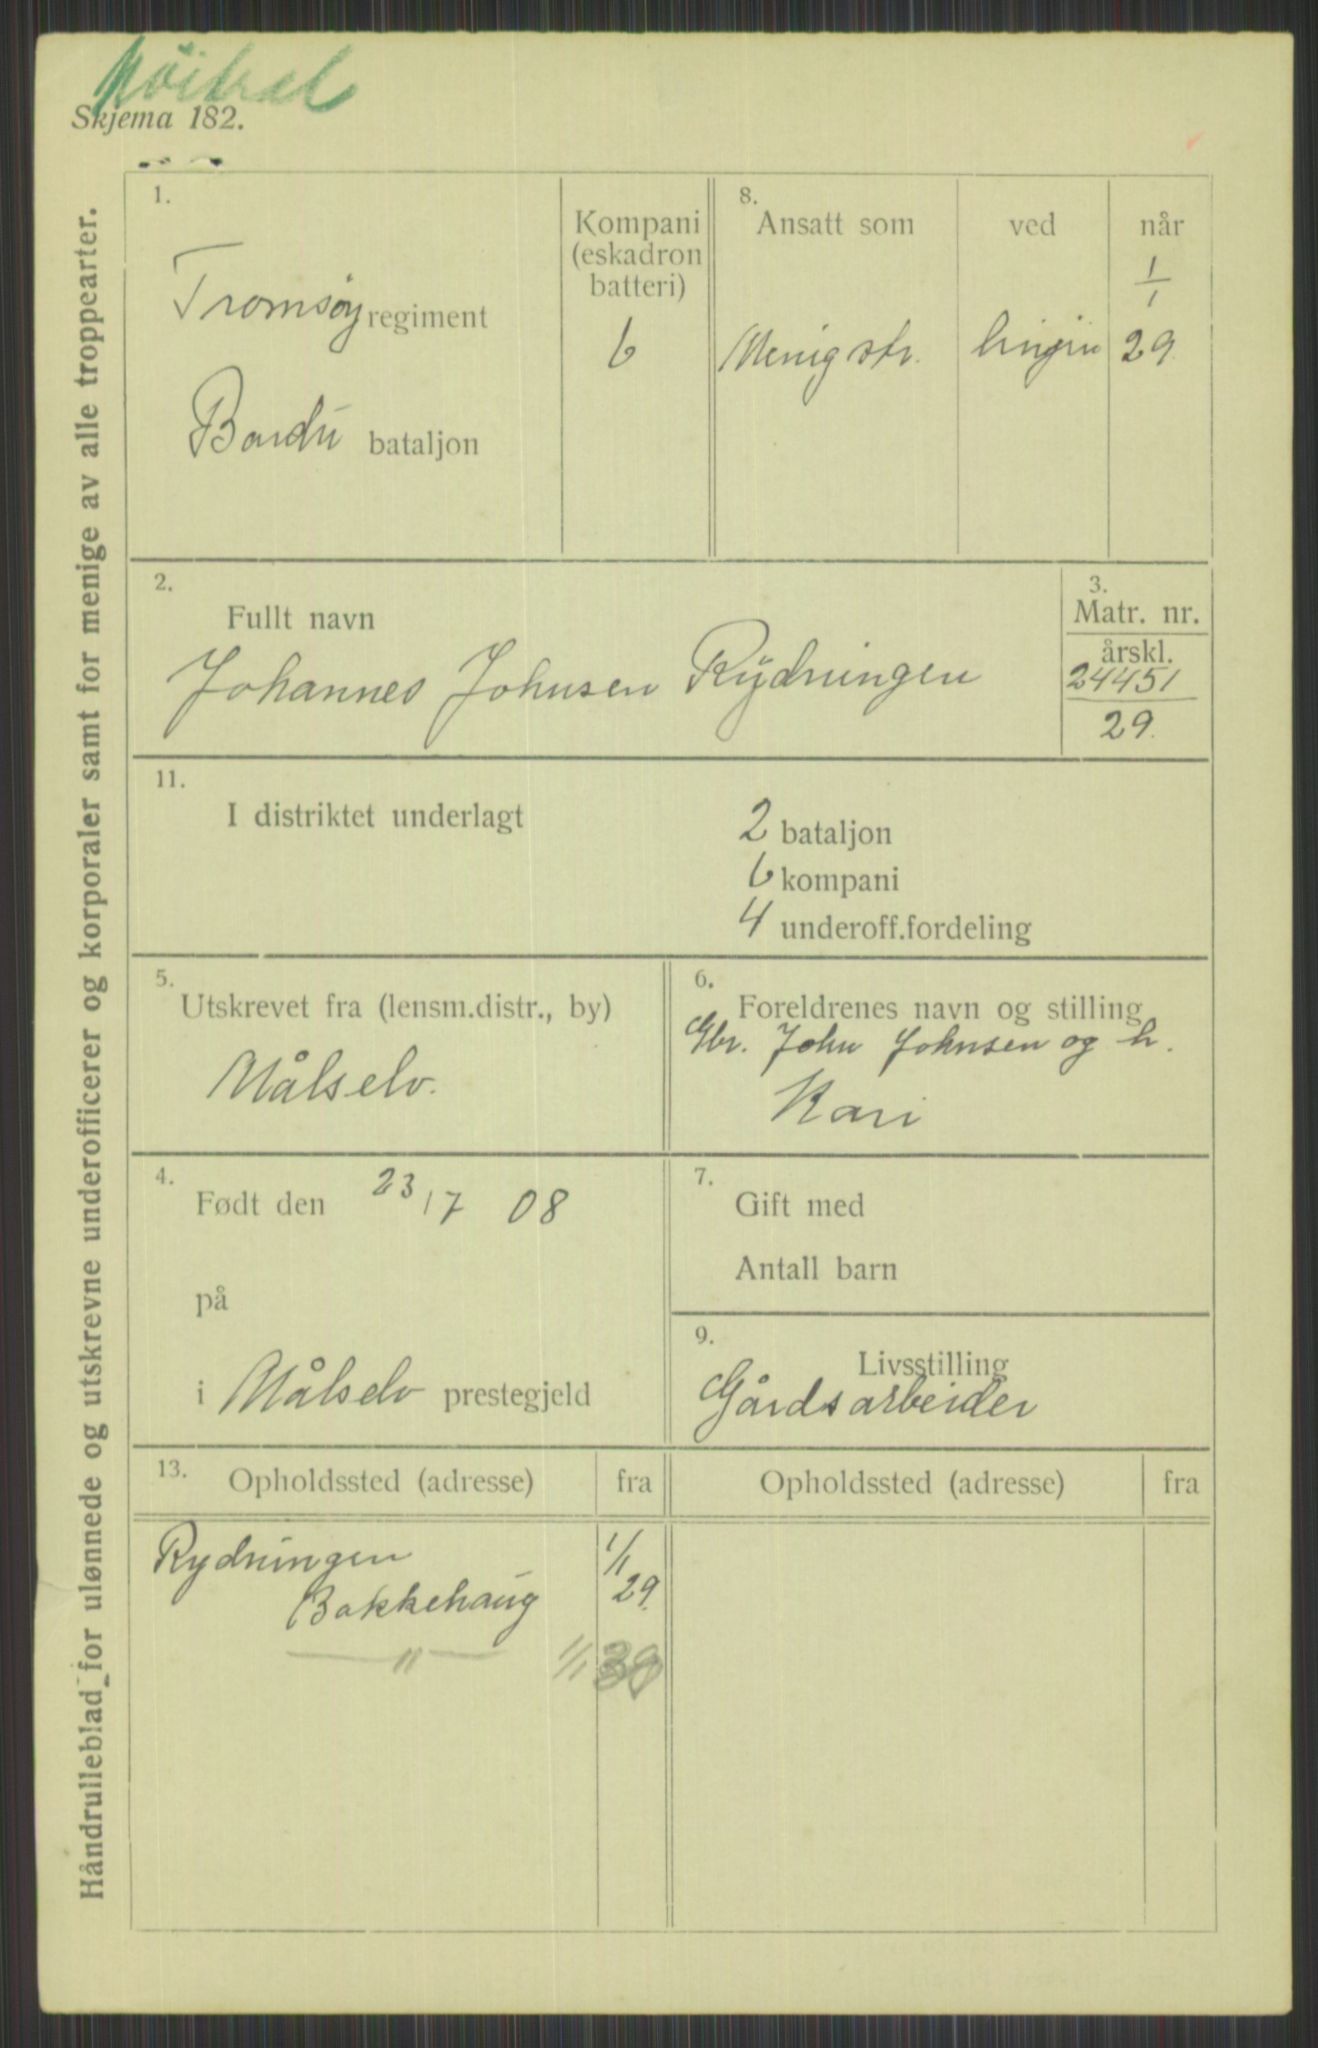 Nöitral
Skjema 182.
Håndrulleblad for ulønnede og utskrevne underofficerer og korporaler samt for menige av alle troppearter.
1.
Tromsøy regiment
Bardu bataljon
Kompani
(eskadron
batteri)
6
8.
Ansatt som
Menig str.
ved
linjen
når
1/1
29.
2.
Fullt navn
Johannes Johnsen Rydningen
3.
Matr. nr.
årskl.
24451
29.
11.
I distriktet underlagt
2 bataljon
6 kompani
4 underoff.fordeling
5.
Utskrevet fra (lensm.distr., by)
Målselv.
6.
Foreldrenes navn og stilling
Gbr. John Johnsen og h.
Kari
4.
Født den 23/7 08
på
i Målselv prestegjeld
7.
Gift med
Antall barn
9.
Livsstilling
Gårdsarbeider
13.
Opholdssted (adresse) fra
Opholdssted (adresse) fra
Rydningen 1/1
Bakkehaug 29.
— " — 1/1